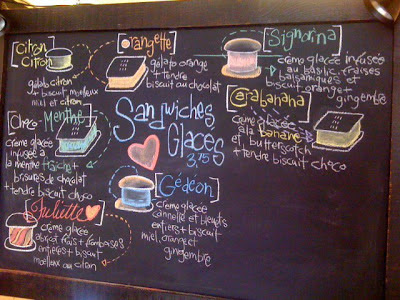 [Citron
Citron]
gelato citron
+ biscuit moelleux
miel et citron
[Orangette]
gelato orange
+ tendre
biscuit au chocolat
[Signorina]
crème glacée infusée
au basilic, fraises
balsamiques et
biscuit orange +
gingembre
Choco-
Menthe]
crème glacée
infusée à
la menthe
fraîche +
brisures de chocolat
+ tendre biscuit choco
Sandwiches
Glacés
3.75
[Carabanana]
crème glacée
à la banane
et butterscotch
+ tendre biscuit choco
[Gédéon]
crème glacée
cannelle et bleuets
entiers + biscuit
miel, orange et
gingembre
[Juliette]
crème glacée
abricot frais + framboises
entières + biscuit
moelleux au citron